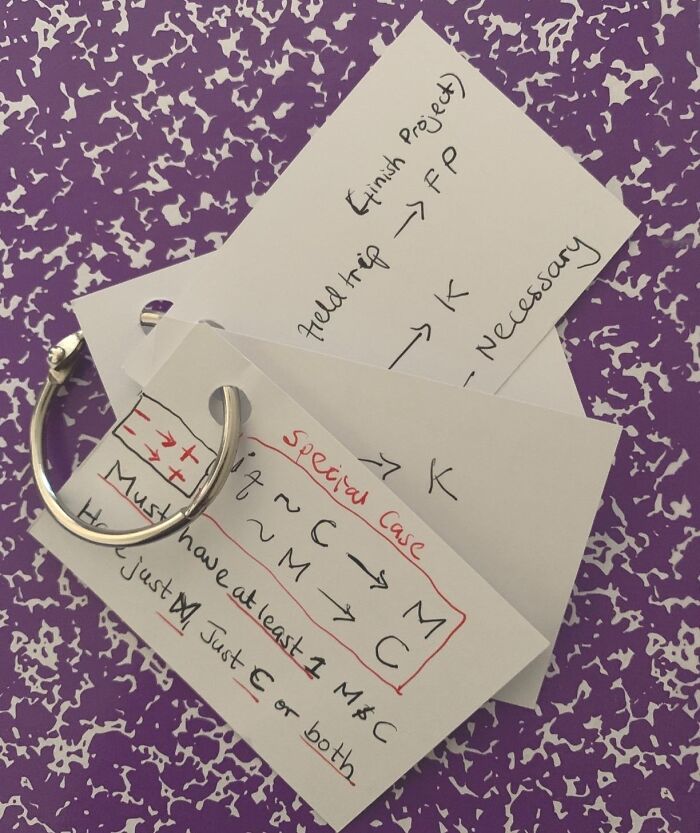 (finish Project)
Field trip → FP
→ K
- Necessary
→ K
Special Case
- → +
- → +
if ~ C → M
~ M → C
Must have at least 1 M & C
Have just M, Just C or both